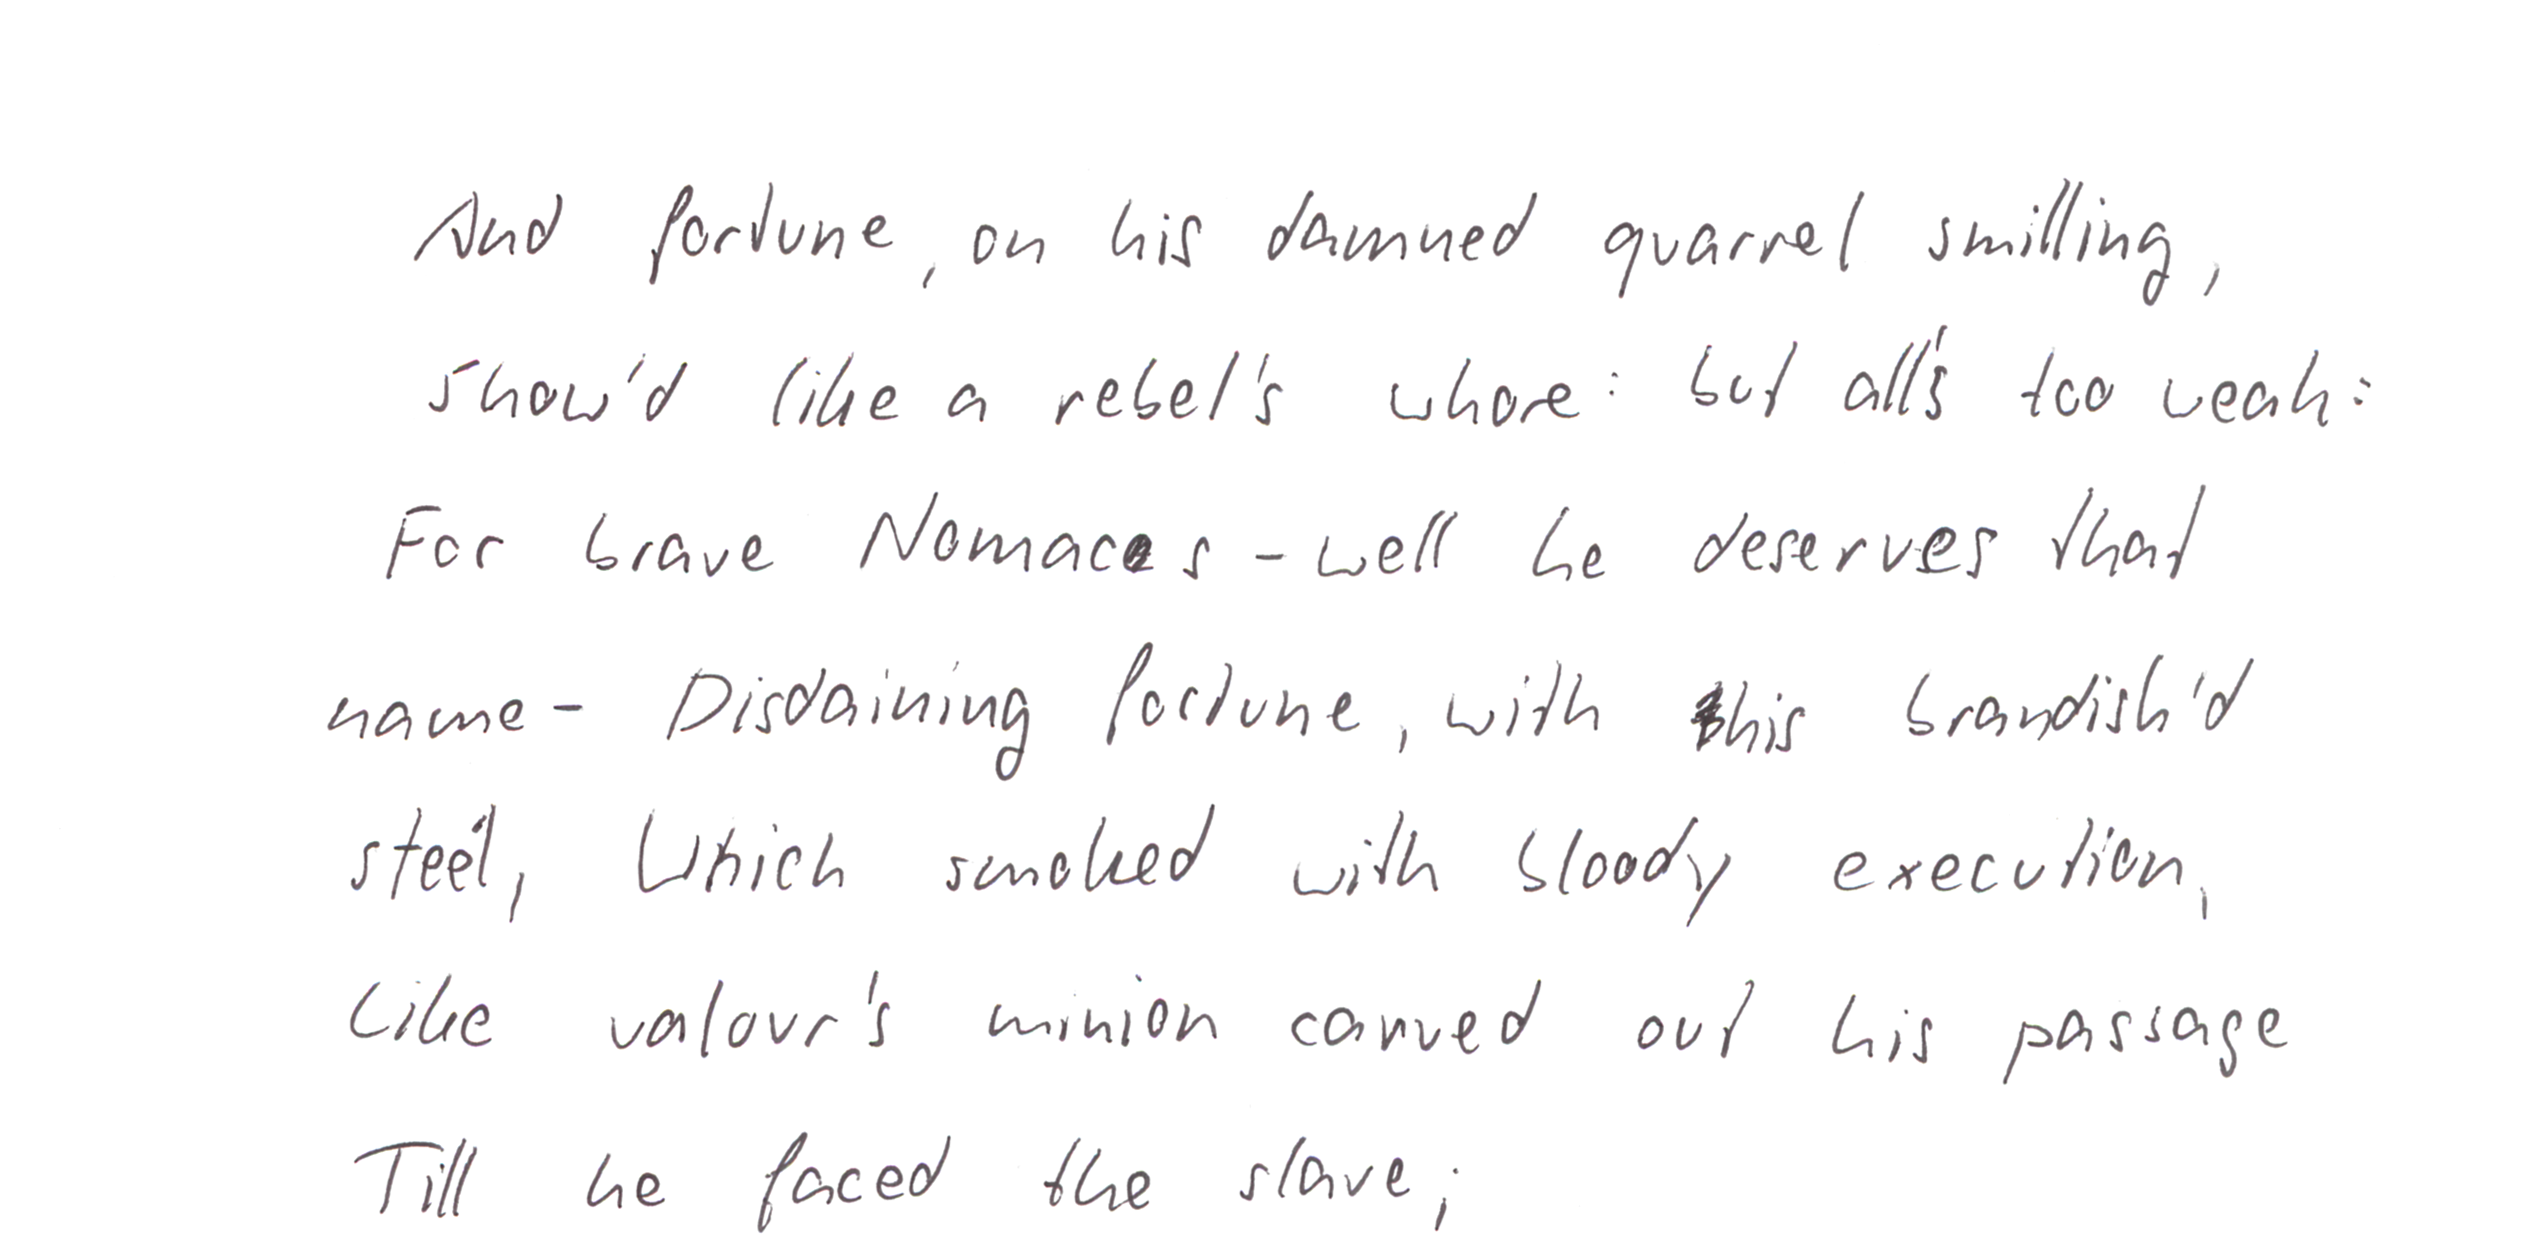 And fortune, on his damned quarrel smilling,
Show'd like a rebel's whore: but all's too weak:
For brave Nomaces - well he deserves that
name - Disdaining fortune, with this brandish'd
steel, Which smoked with bloody execution,
Like valour's minion carved out his passage
Till he faced the slave;